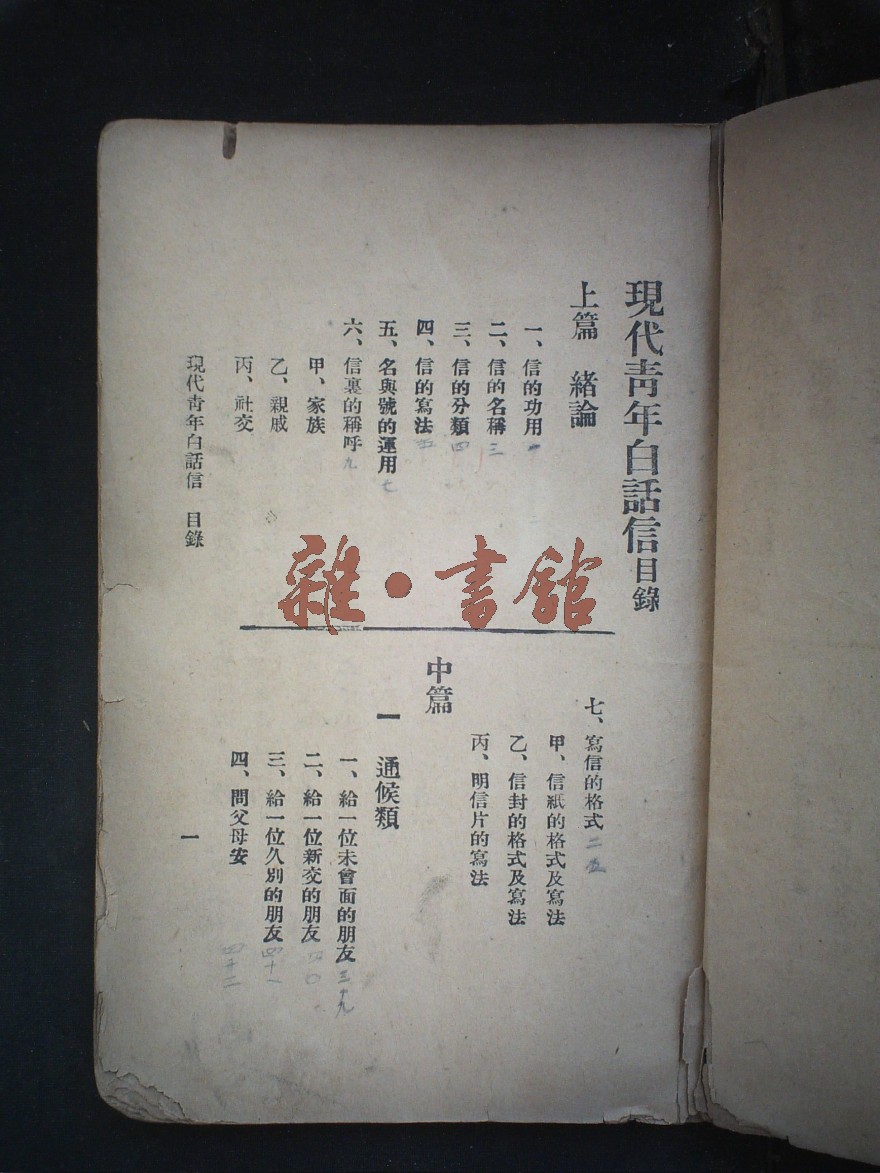 現代青年白話信目錄
上篇　緒論
一、信的功用 一
二、信的名稱 三
三、信的分類 四
四、信的寫法 五
五、名與號的運用 七
六、信裏的稱呼 九
甲、家族
乙、親戚
丙、社交
七、寫信的格式 二五
甲、信紙的格式及寫法
乙、信封的格式及寫法
丙、明信片的寫法
中篇
一　通候類
一、給一位未會面的朋友 三十九
二、給一位新交的朋友 四〇
三、給一位久別的朋友 四十一
四、問父母安 四十二
現代青年白話信　目錄
一
雜·書館